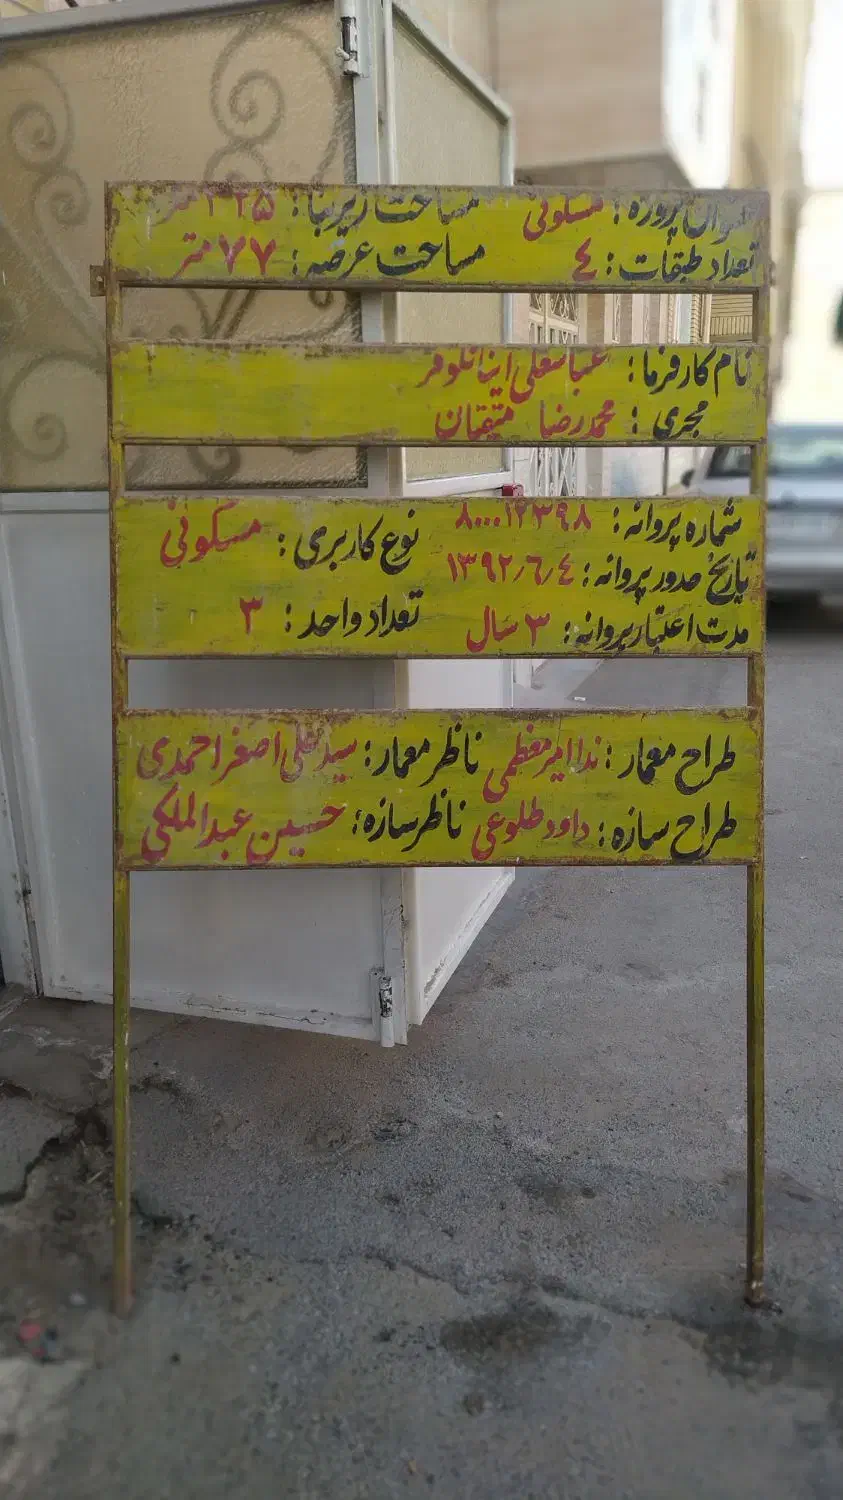 عنوان پروژه: مسکونی مساحت زیربنا: ۳۲۵ متر
تعداد طبقات: ٤ مساحت عرصه: ۷۷ متر
نام کارفرما: عباسعلی اینانلوفر
مجری: محمدرضا متیقنان
شماره پروانه: ۸۰۰۰۱۲۳۹۸
نوع کاربری: مسکونی
تاریخ صدور پروانه: ۱۳۹۲/٦/٤
مدت اعتبار پروانه: ۳ سال تعداد واحد: ۳
طراح معمار: ندا امیرمعظمی ناظر معمار: سیدعلی اصغر احمدی
طراح سازه: داود طلوعی ناظر سازه: حسین عبدالملکی